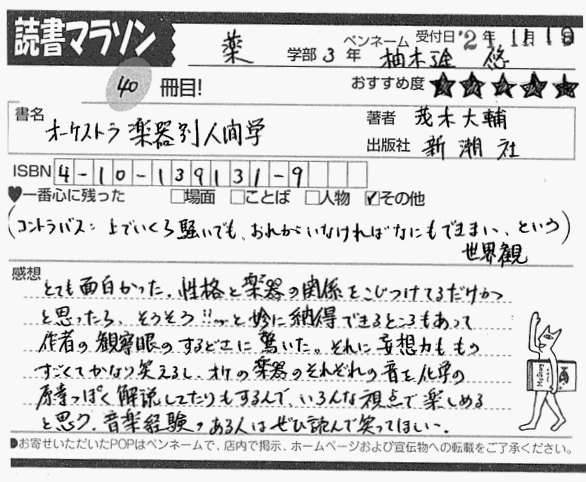 読書マラソン
薬 学部 3 年 ペンネーム 柚木 悠 受付日 '2 年 11月1
40 冊目!
おすすめ度 ★★★★★
書名 オーケストラ 楽器別人間学
著者 茂木大輔
出版社 新潮社
ISBN 4-10-139131-9
♥一番心に残った □場面 □ことば □人物 ☑その他
(コントラバス: 上でいくら騒いでも、おれがいなければなにもできまい、という
世界観)
感想
とても面白かった。性格と楽器の関係をこじつけてるだけかと
と思ったら、そうそう!!っと妙に納得できるところもあって
作者の観察眼のするどさに驚いた。それに妄想力ももの
すごくてかなり笑えるし、オケの楽器のそれぞれの音を化学の
っぽく解説してたりもするんで、いろんな視点で楽しめる
と思う。音楽経験のある人はぜひ読んで笑ってほしい。
●お寄せいただいたPOPはペンネームで、店内で掲示、ホームページおよび宣伝物への転載をご了承ください。